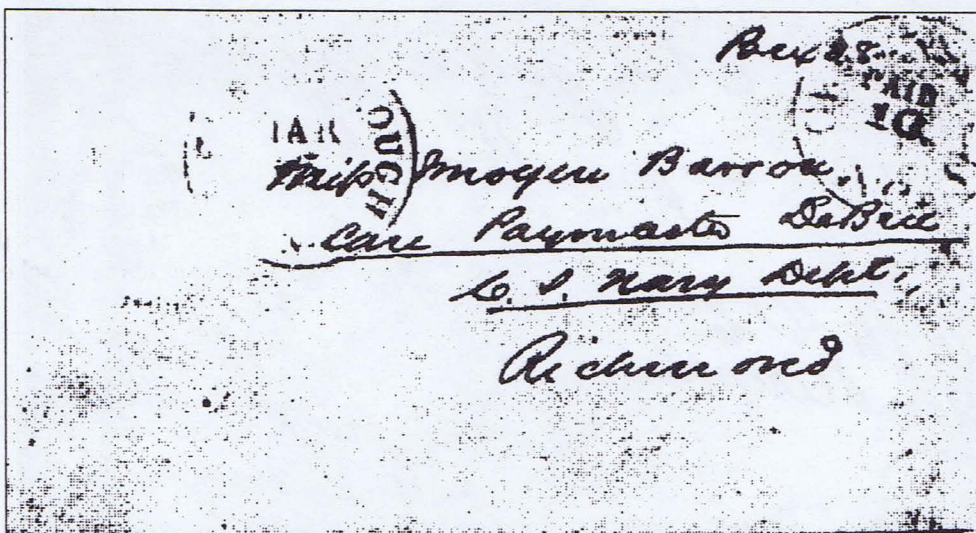 Box 28
PAID
10
OUGH
Miss Imogen Barron
Care Paymaster DeBree
C. S. Navy Dept.
Richmond